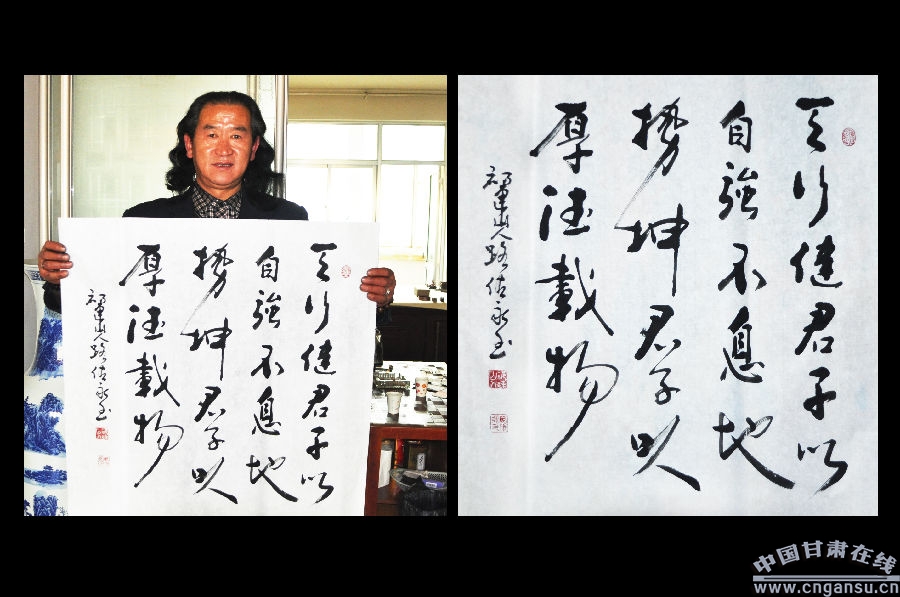 天行健君子以
自強不息地
勢坤君子以
厚德載物
祁連山人路永
天行健君子以
自強不息地
勢坤君子以
厚德載物
祁連山人路永
中国甘肃在线
www.cngansu.cn